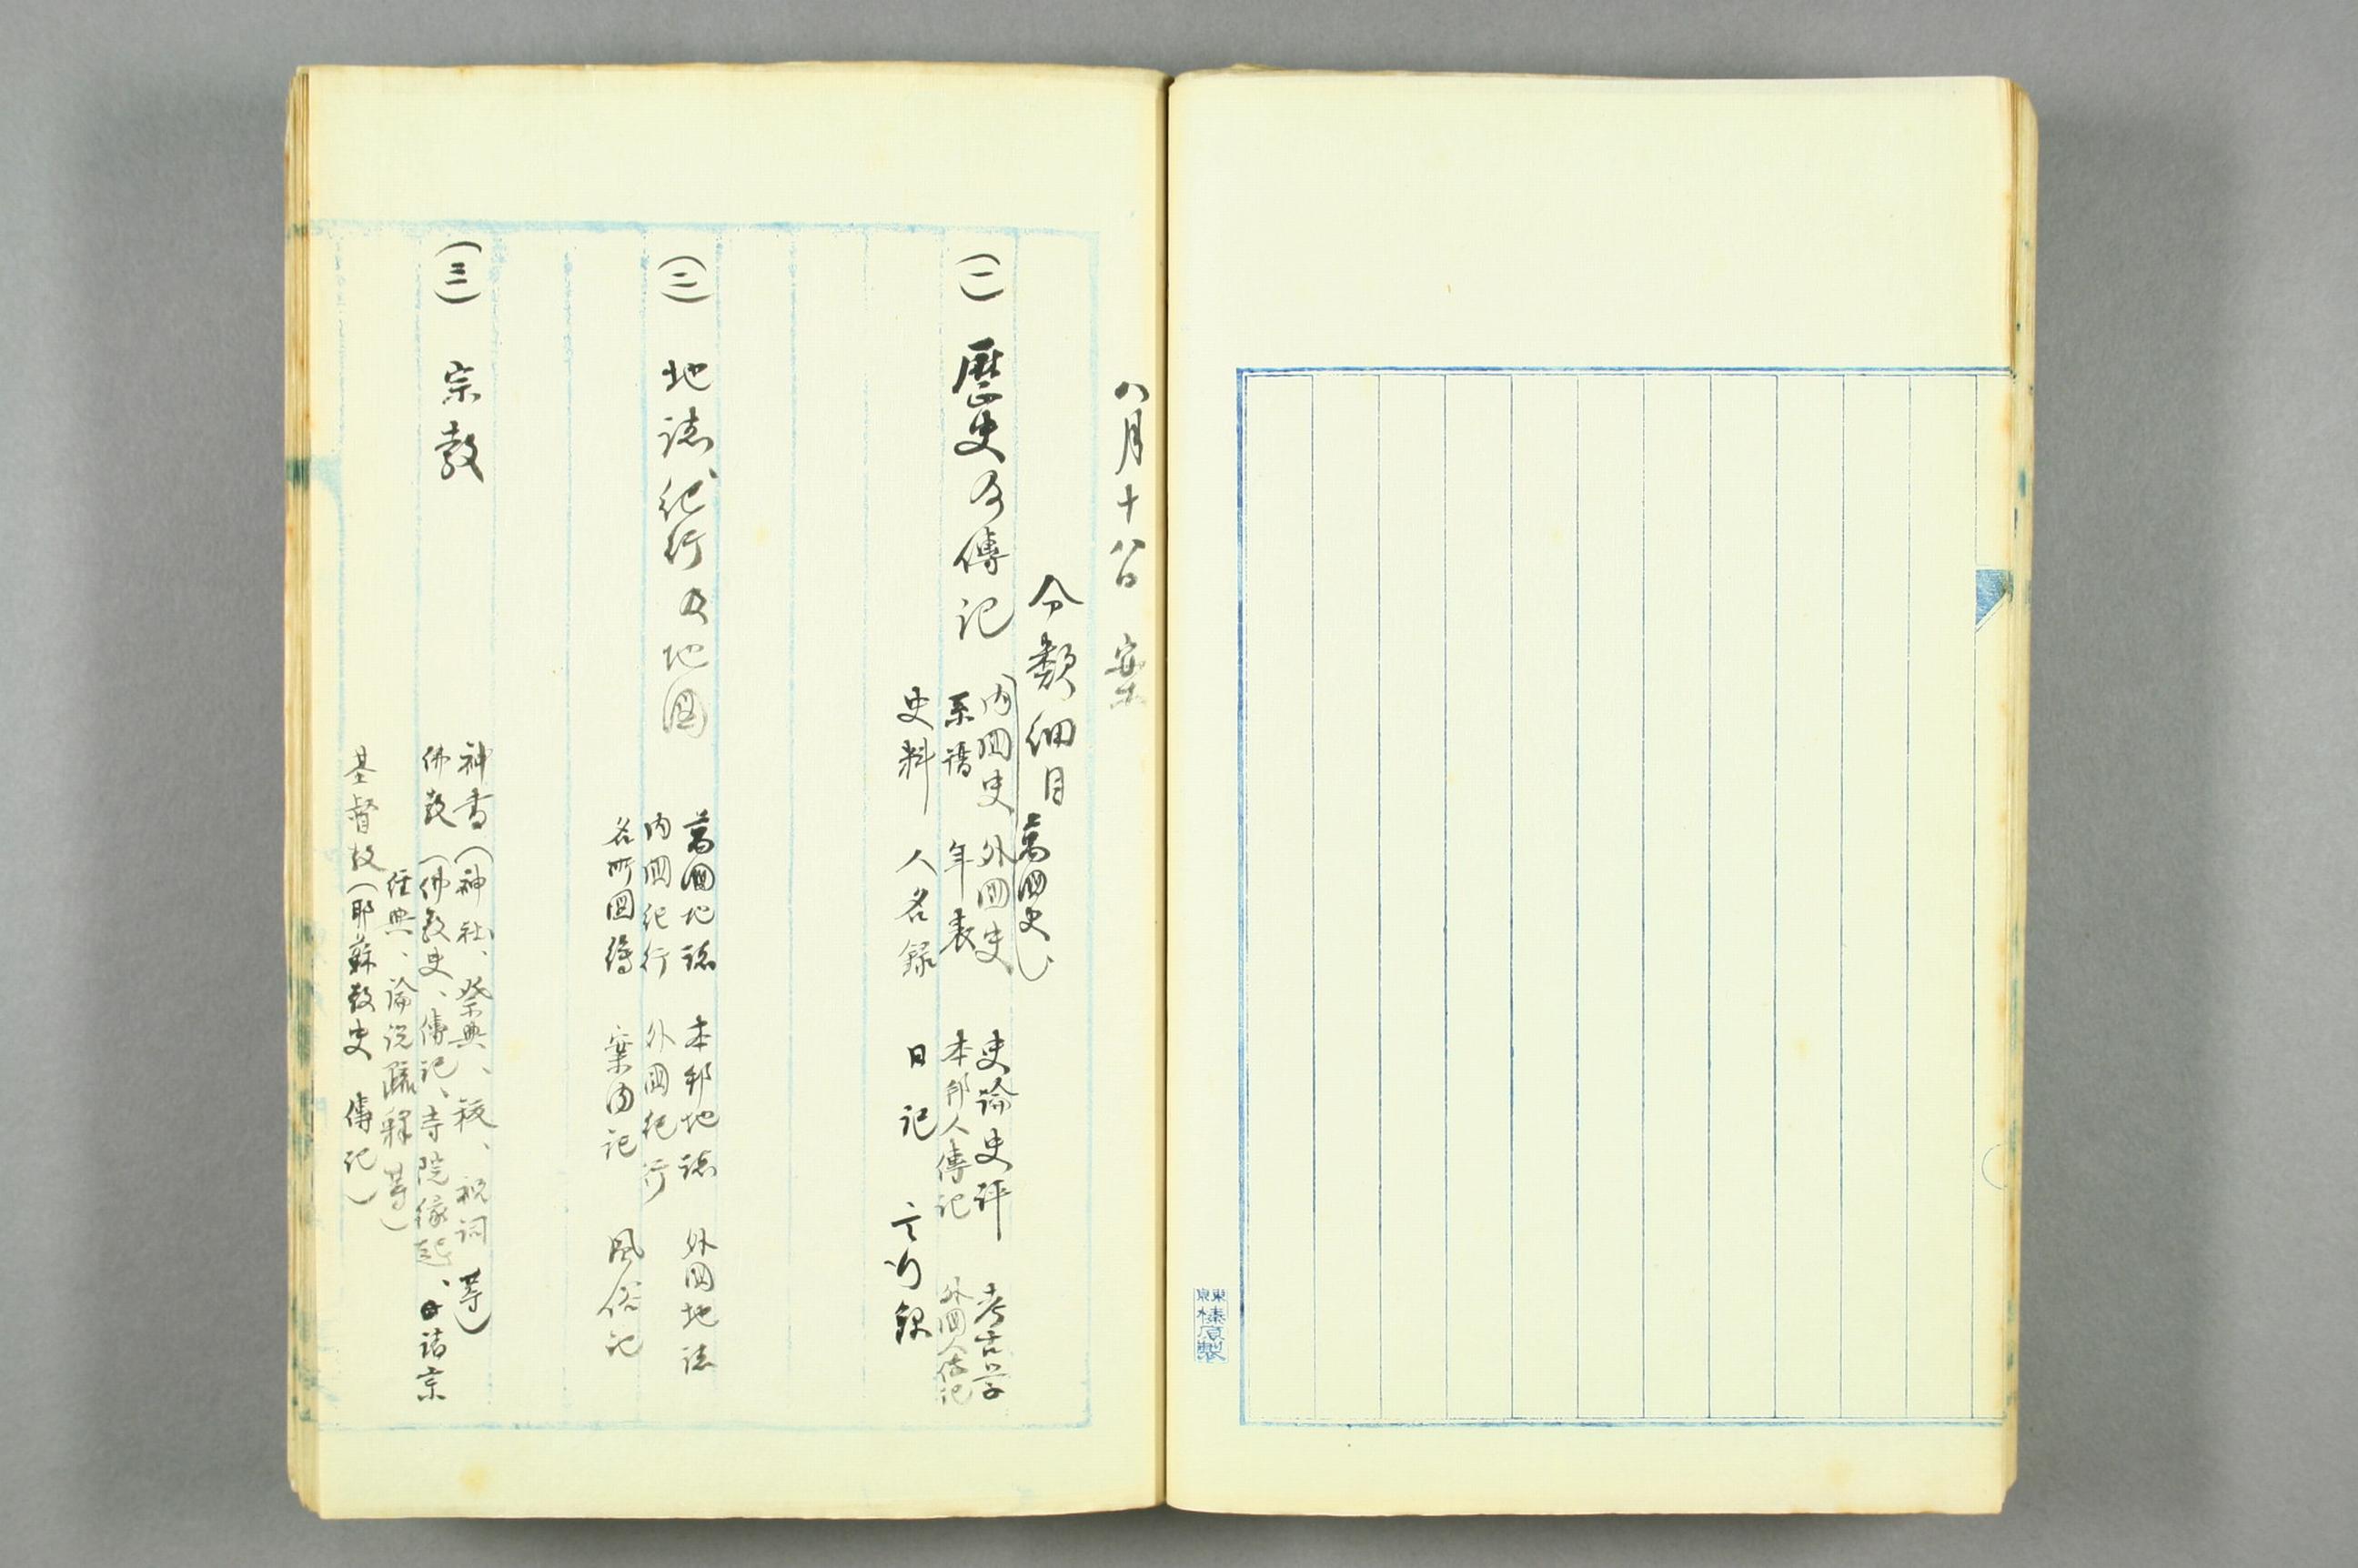 東京榛原製
八月十八日 案
分類細目
(一) 歴史及傳記
萬国史
内国史 外国史 史論史評 考古学
系譜 年表 本邦人傳記 外国人傳記
史料 人名録 日記 言行録
(二) 地誌紀行及地圖
萬国地誌 本邦地誌 外国地誌
内国紀行 外国紀行
名所圖繪 案内記 風俗記
(三) 宗教
神書(神社、祭典、祓、祝詞 等)
佛教(佛教史、傳記、寺院縁起、諸宗
経典、論説疏釋等)
基督教(耶蘇教史 傳記)